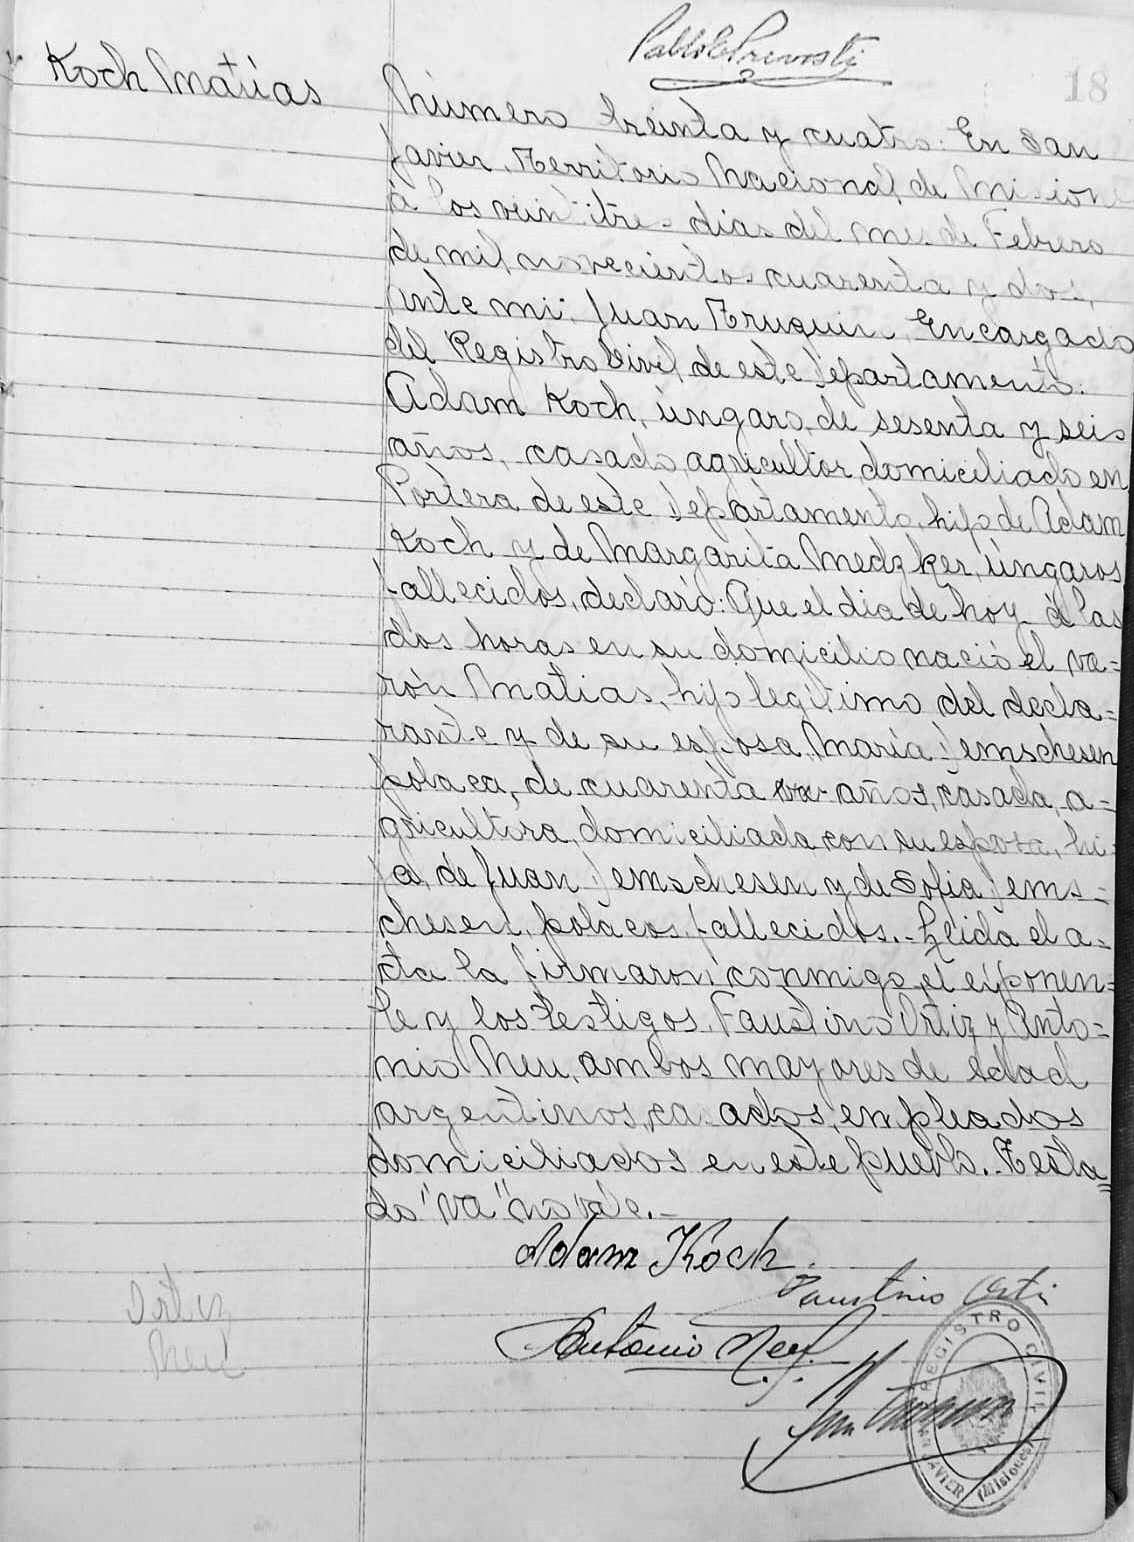 18
Koch Matías
Número treinta y cuatro: En San
Javier, Territorio Nacional de Misiones
á los veintitres dias del mes de Febrero
de mil novecientos cuarenta y dos,
Ante mi: Juan Truquin, Encargado
del Registro Civil de este Departamento:
Adam Koch, úngaro, de sesenta y seis
años, casado, agricultor, domiciliado en
Portera de este Departamento, hijo de Adam
Koch y de Margarita Medzker, úngaros
fallecidos, declaró: Que el dia de hoy á las
dos horas en su domicilio nació el va=
rón Matias, hijo legítimo del decla=
rante y de su esposa María Jemschesen
polaca, de cuarenta va años, casada, a=
gricultora, domiciliada con su esposo, hi=
ja de Juan Jemschesen y de Sofia Jems=
chesen, polacos, fallecidos.- Leida el a=
cta la firmaron conmigo, el exponen=
te y los testigos, Faustino Ortiz y Anto=
nio Neu, ambos mayores de edad
argentinos, casados, empleados
domiciliados en este pueblo.- Testa=
do "va" no vale.-
Adam Koch
Faustino Orti
Antonio Neu
Ortiz
Neu
REGISTRO CIVIL
SAN JAVIER (Misiones)